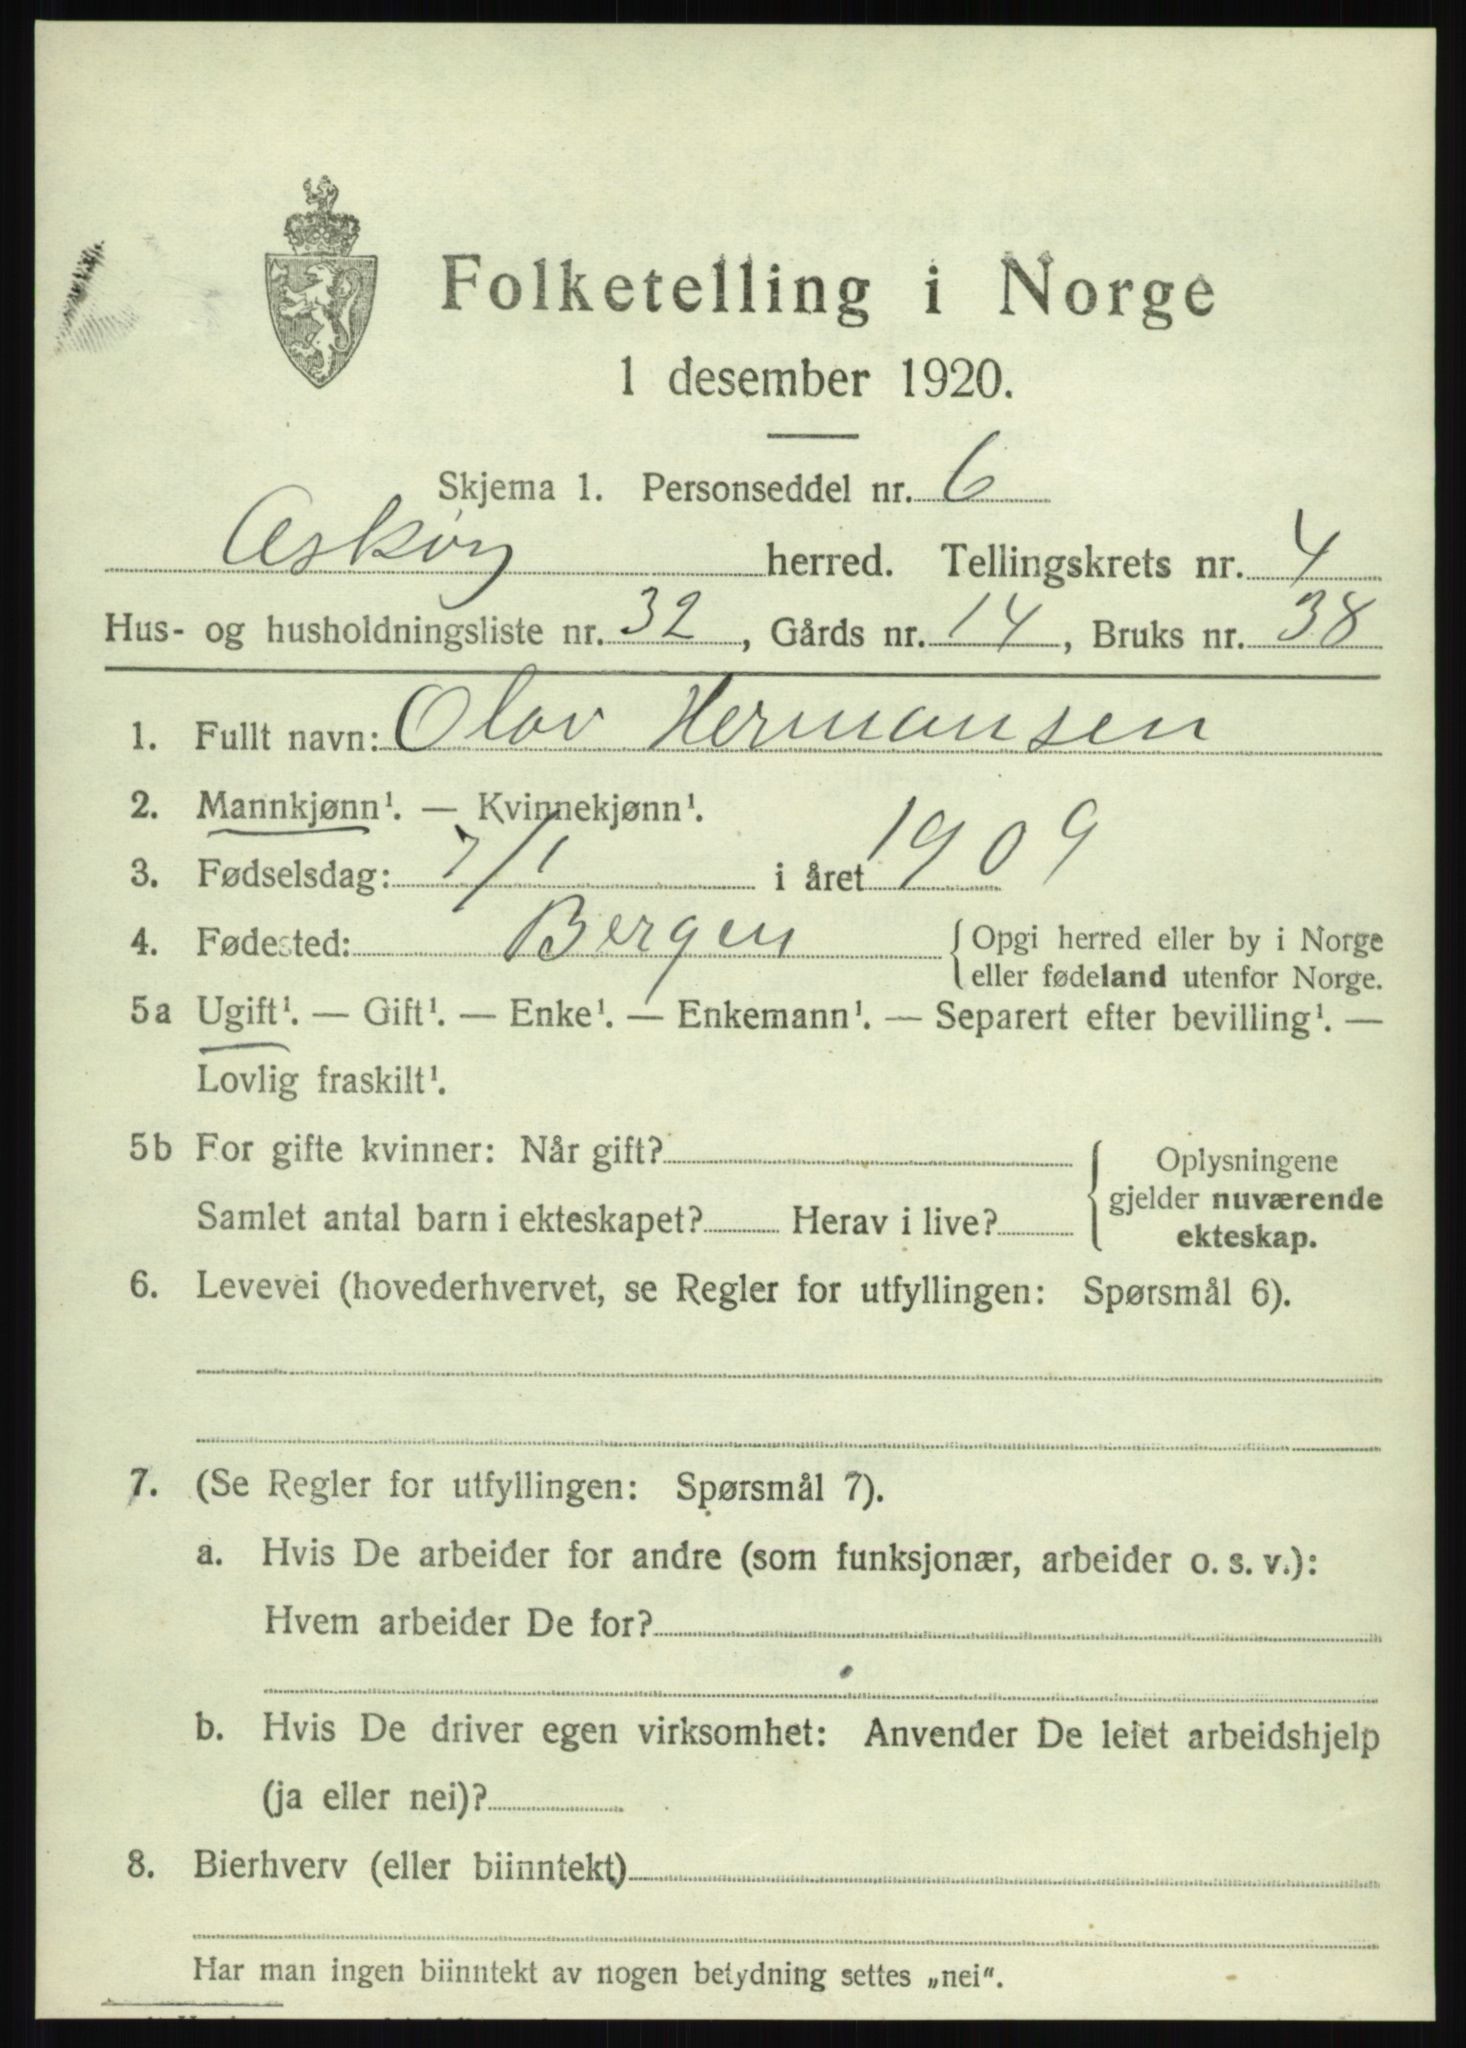 Folketelling i Norge
1 desember 1920.
Skjema 1. Personseddel nr. 6
Askøy herred. Tellingskrets nr. 4
Hus- og husholdningsliste nr. 32, Gårds nr. 14, Bruks nr. 38
1. Fullt navn: Olav Hermansen
2. Mannkjønn¹. — Kvinnekjønn¹.
3. Fødselsdag: 7/1 i året 1909
4. Fødested: Bergen { Opgi herred eller by i Norge
eller fødeland utenfor Norge.
5a Ugift¹. — Gift¹. — Enke¹. — Enkemann¹. — Separert efter bevilling¹. —
Lovlig fraskilt¹.
5b For gifte kvinner: Når gift?
Samlet antal barn i ekteskapet? Herav i live?
{ Oplysningene
gjelder nuværende
ekteskap.
6. Levevei (hovederhvervet, se Regler for utfyllingen: Spørsmål 6).
7. (Se Regler for utfyllingen: Spørsmål 7).
a. Hvis De arbeider for andre (som funksjonær, arbeider o. s. v.):
Hvem arbeider De for?
b. Hvis De driver egen virksomhet: Anvender De leiet arbeidshjelp
(ja eller nei)?
8. Bierhverv (eller biinntekt)
Har man ingen biinntekt av nogen betydning settes „nei“.